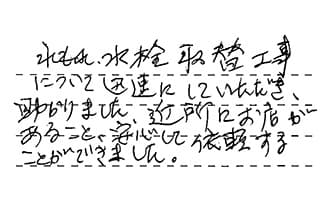 水もれ、水栓取替工事
について迅速にしていただき、
助かりました。近所にお店が
あること、安心して依頼する
ことができました。